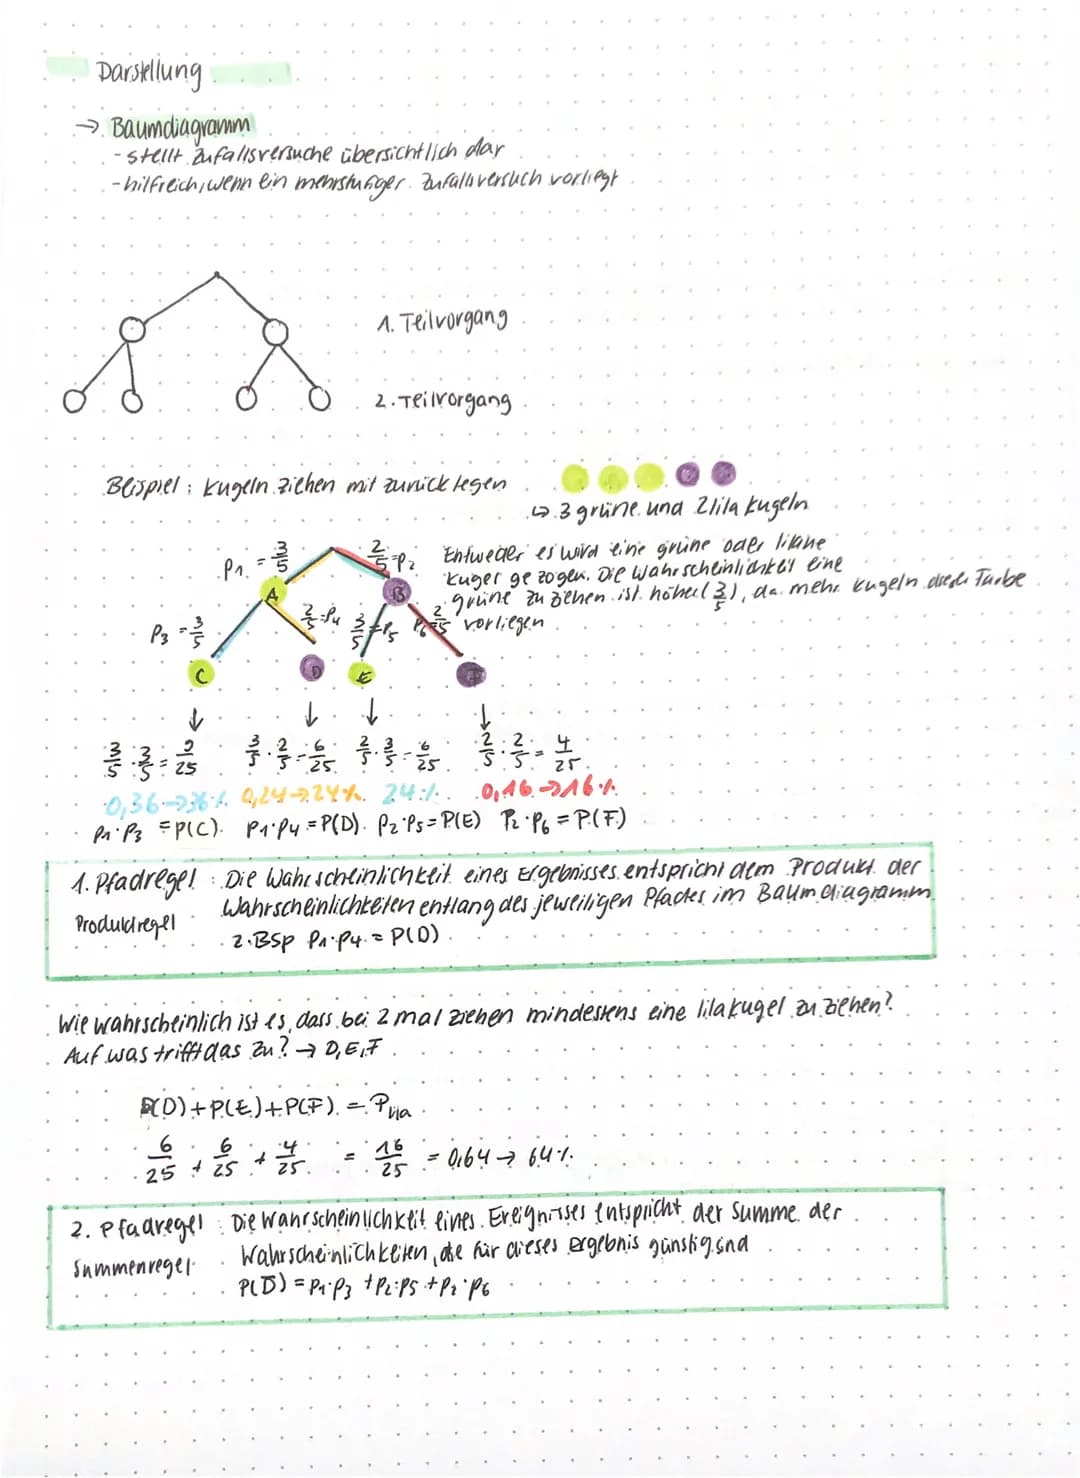 Darstellung
→ Baumdiagramm
- stellt Zufallsversuche übersichtlich dar
- hilfreich, wenn ein mehrstufiger Zufallsversuch vorliegt
1. Teilvorgang
2. Teilvorgang
Beispiel: Kugeln ziehen mit zurücklegen
↳ 3 grüne und 2 lila Kugeln
P₁ = 3/5
2/5 = P₂
Entweder es wird eine grüne oder lilane
Kugel gezogen. Die Wahrscheinlichkeit eine
grüne zu ziehen ist höher (3/5), da mehr Kugeln dieser Farbe
vorliegen
A
B
P₃ = 3/5
2/5 = P₄
3/5 = P₅
P₆ = 2/5
C
D
E
F
↓ ↓ ↓ ↓
3/5 · 3/5 = 9/25
3/5 · 2/5 = 6/25
2/5 · 3/5 = 6/25
2/5 · 2/5 = 4/25
0,36 → 36% 0,24 → 24% 24% 0,16 → 16%
P₁·P₃ = P(C) P₁·P₄ = P(D) P₂·P₅ = P(E) P₂·P₆ = P(F)
1. Pfadregel: Die Wahrscheinlichkeit eines Ergebnisses entspricht dem Produkt der
Produktregel Wahrscheinlichkeiten entlang des jeweiligen Pfades im Baumdiagramm
z.Bsp P₁·P₄ = P(D)
Wie wahrscheinlich ist es, dass bei 2 mal ziehen mindestens eine lila Kugel zu ziehen?
Auf was trifft das zu? → D, E, F
P(D) + P(E) + P(F) = P lila
6/25 + 6/25 + 4/25 = 16/25 = 0,64 → 64%
2. Pfadregel: Die Wahrscheinlichkeit eines Ereignisses entspricht der Summe der
Summenregel Wahrscheinlichkeiten, die für dieses Ergebnis günstig sind
P(D) = P₁·P₃ + P₂·P₅ + P₂·P₆